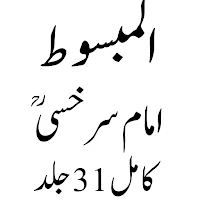 المبسوط
امام سرخسیؒ
کامل 31 جلد